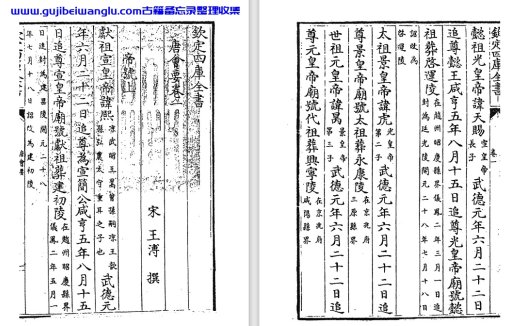 www.gujibeiwanglu.com古籍备忘录整理收集
欽定四庫全書
唐會要卷一
宋 王溥 撰
帝號上
獻祖宣皇帝諱熙涼武昭王暠曾孫嗣涼王歆
孫弘農太守重耳之子也武德元
年六月二十二日追尊為宣簡公咸亨五年八月十五
日追尊宣皇帝廟號獻祖葬建初陵在趙州昭慶縣界
儀鳳二年五月一
日追封為建昌陵開元二十八
年七月十八日詔改為建初陵
欽定四庫全書
懿祖光皇帝諱天賜宣皇帝
長子武德元年六月二十二日
追尊懿王咸亨五年八月十五日追尊光皇帝廟號懿
祖葬啓運陵在趙州昭慶縣界儀鳳二年三月一日追
封為延光陵開元二十八年七月十八日
詔改為
啓運陵
太祖景皇帝諱虎光皇帝
第三子武德元年六月二十二日追
尊景皇帝廟號太祖葬永康陵在京兆府
三原縣界
世祖元皇帝諱昺景皇帝
第三子武德元年六月二十二日追
尊元皇帝廟號代祖葬興寧陵在京兆府
咸陽縣界